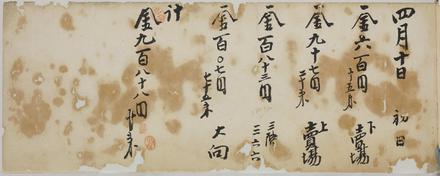 四月十日 初日
一金六百円 下 賣場
一金九十七円 上 賣場
一金百八十三円 三階 三六六
一金百〇七円 七十五銭 大向
計
金九百八十八円